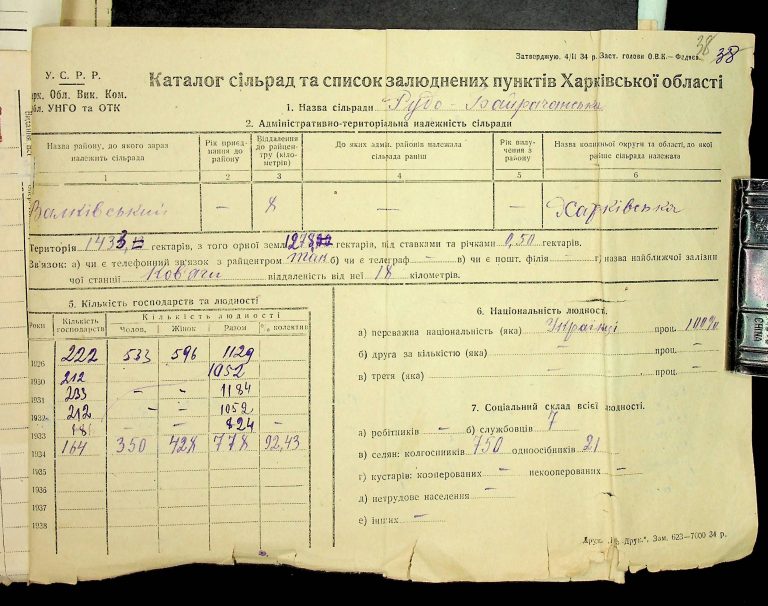 38 38
Затверджую. 4/II 34 р. Заст. голови О.В.К.—Федяев.
У. С. Р. Р.
Харк. Обл. Вик. Ком.
Обл. УНГО та ОТК
Каталог сільрад та список залюднених пунктів Харківської області
1. Назва сільради Рудо-Байрачанська
2. Адміністративно-територіальна належність сільради
Назва району, до якого зараз належить сільрада | Рік приєднання до району | Віддалення до райцентру (кілометрів) | До яких адм. районів належала сільрада раніш | Рік вилучення з району | Назва колишньої округи та області, до якої раніше сільрада належала
1 | 2 | 3 | 4 | 5 | 6
Валківський | — | 8 | — | — | Харківська
Територія 1433 гектарів, з того орної землі 1278 гектарів, під ставками та річками 0,50 гектарів.
Зв'язок: а) чи є телефонний зв'язок з райцентром так б) чи є телеграф — в) чи є пошт. філія — г) назва найближчої залізничої станції Ков'яги віддаленість від неї 18 кілометрів.
5. Кількість господарств та людності
Роки | Кількість господарств | Кількість людності
Чолов. | Жінок | Разом | % колектив
1926 | 222 | 533 | 596 | 1129
1930 | 212 | 1052
1931 | 233 | - | - | 1184
1932 | 212 | - | - | 1052
1933 | 181 | - | - | 824 | -
1934 | 164 | 350 | 428 | 778 | 92,43
1935
1936
1937
1938
6. Національність людності.
а) переважна національність (яка) Українці проц. 100%
б) друга за кількістю (яка) — проц. —
в) третя (яка) — проц. —
7. Соціальний склад всієї людності.
а) робітників — б) службовців 7
в) селян: колгоспників 750 одноосібників 21
г) кустарів: кооперованих — некооперованих —
д) нетрудове населення —
е) інших —
Зам. 623—7000 34 р.